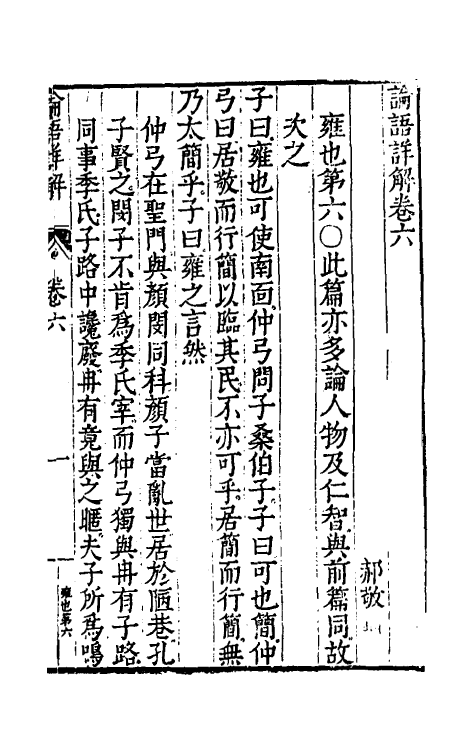 論語詳解卷六
郝敬
雍也第六○此篇亦多論人物及仁智與前篇同故
次之
子曰雍也可使南面仲弓問子桑伯子子曰可也簡仲
弓曰居敬而行簡以臨其民不亦可乎居簡而行簡無
乃太簡乎子曰雍之言然
仲弓在聖門與顏閔同科顏子當亂世居於陋巷孔
子賢之閔子不肯爲季氏宰而仲弓獨與冉有子路
同事季氏子路中讒廢冉有竟與之暱夫子所爲鳴
論語詳解
卷六
一
雍也第六